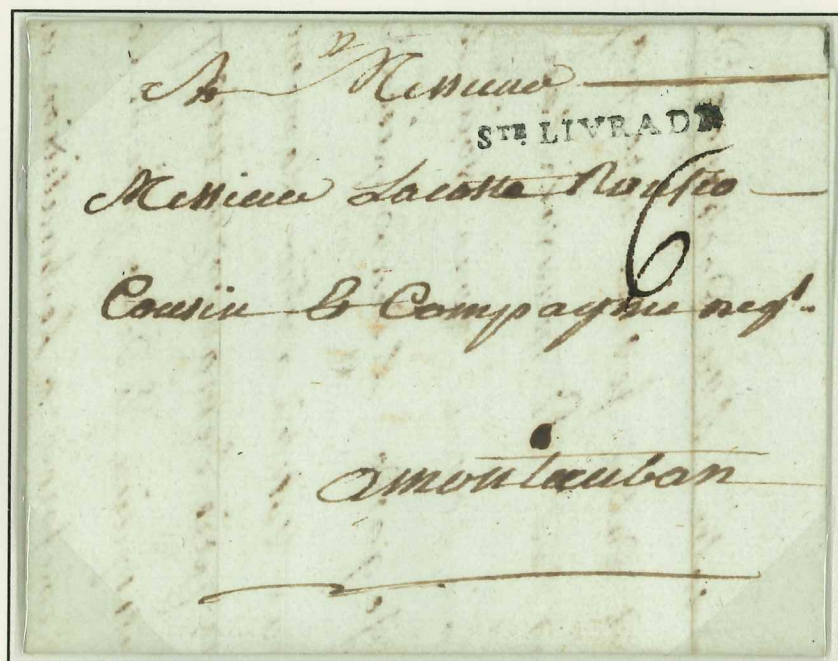 A Messieurs
STE LIVRADE
Messieurs Lacoste
6
Cousin & Compagnie negt.
a montauban